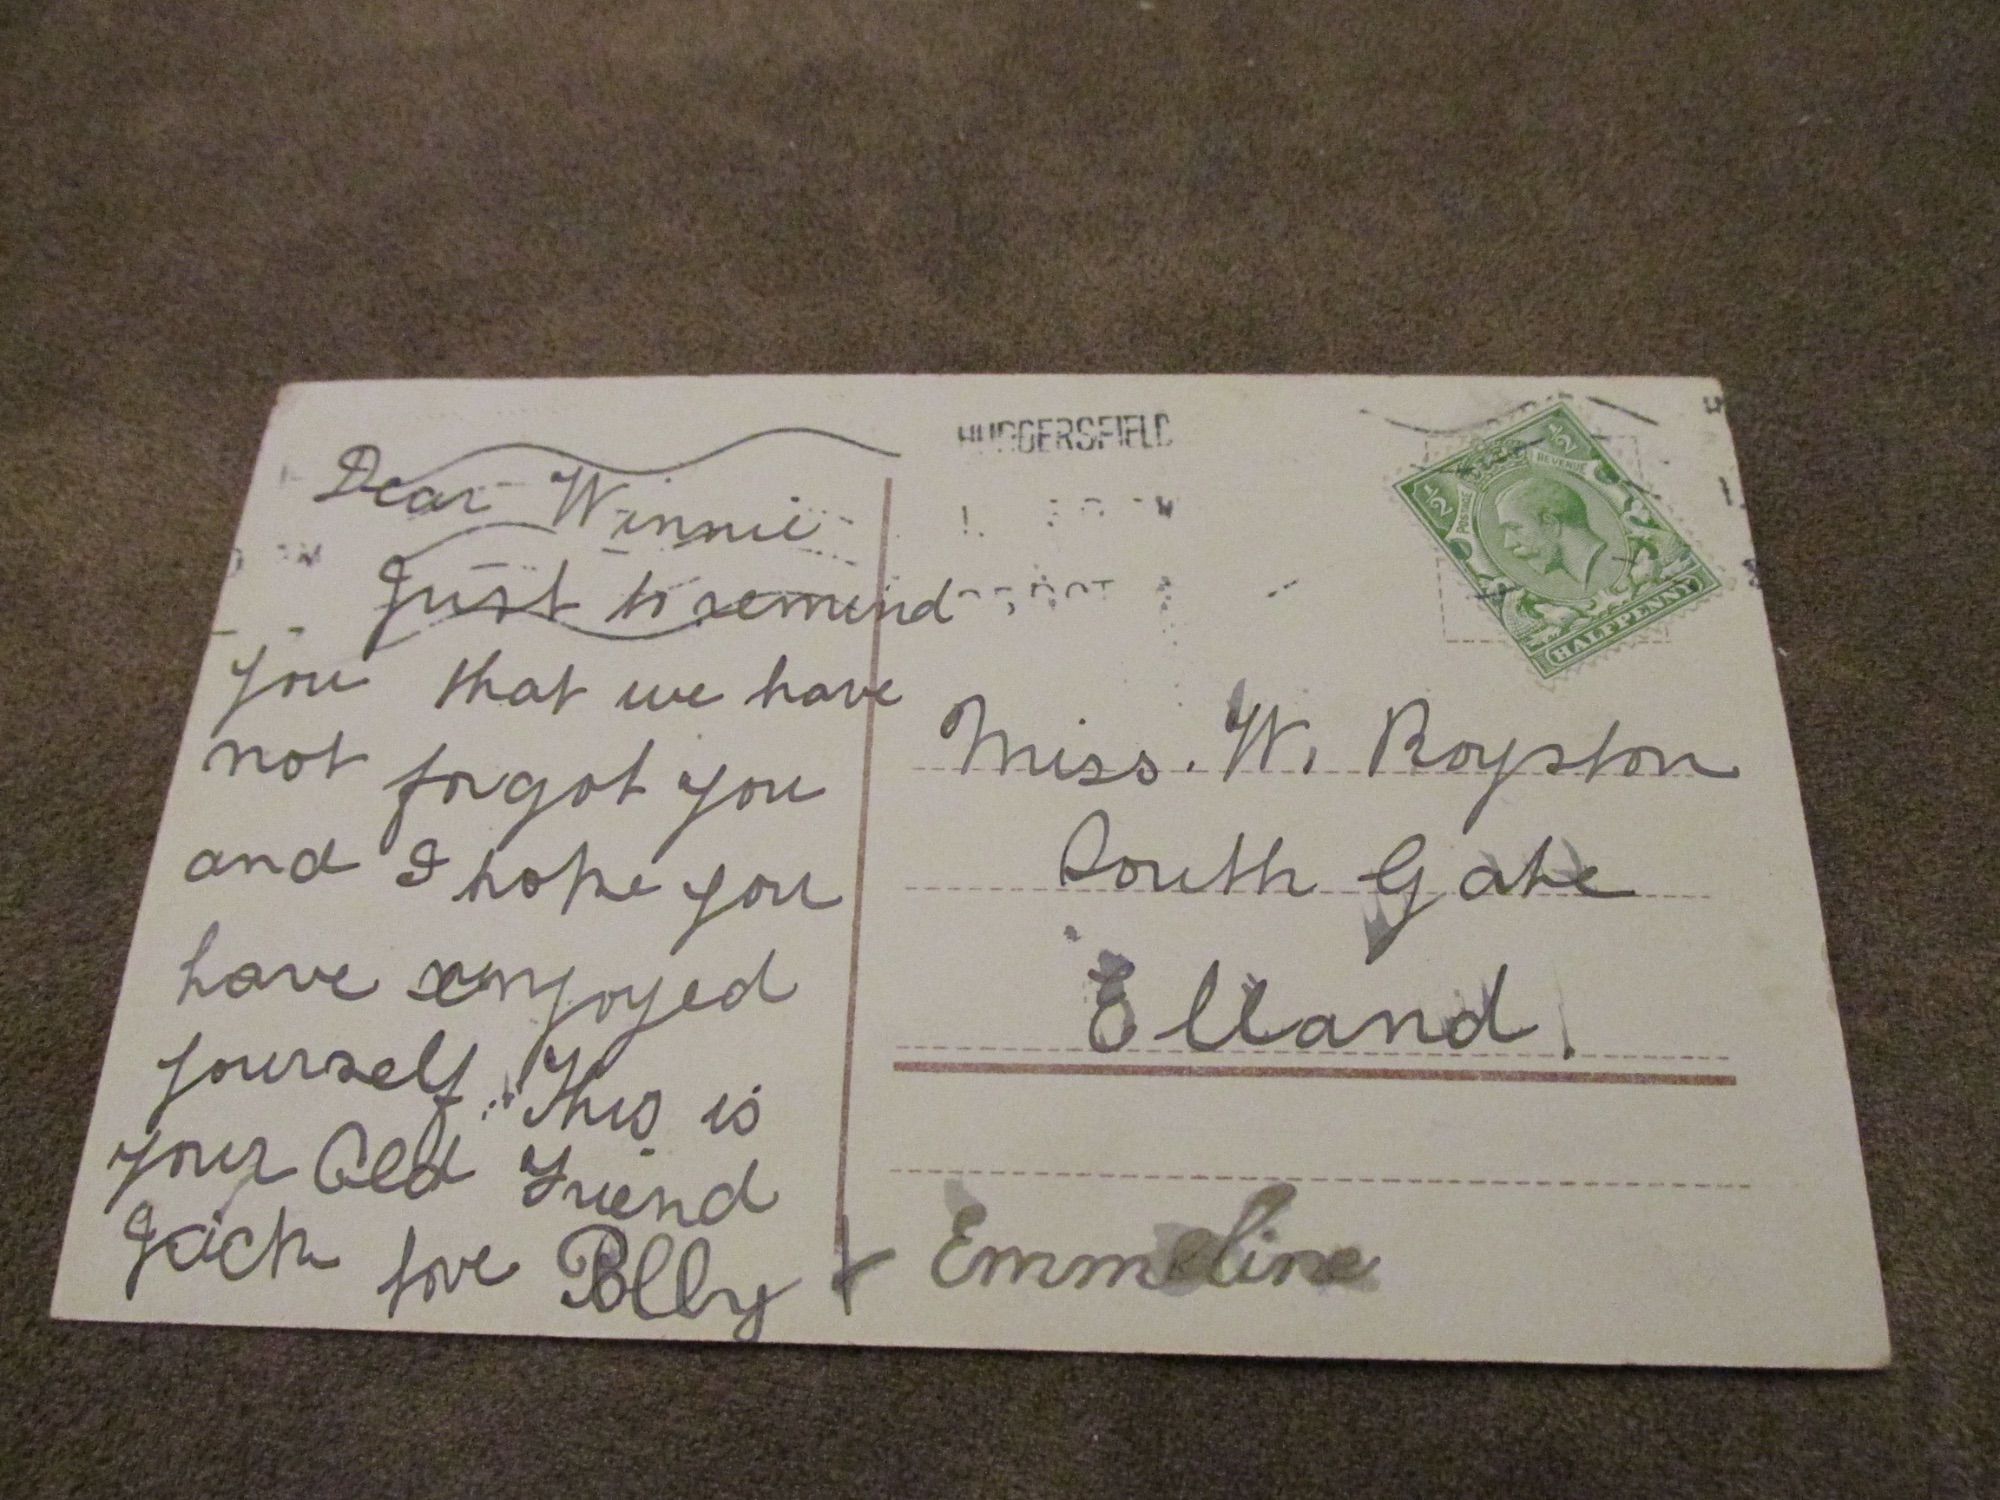 Dear Winnie
Just to remind
you that we have
not forgot you
and I hope you
have enjoyed
yourself. This is
your Old Friend
Jack love Polly + Emmeline
HUDDERSFIELD
½ POSTAGE REVENUE ½
HALFPENNY
Miss. W. Royston
South Gate
Elland.